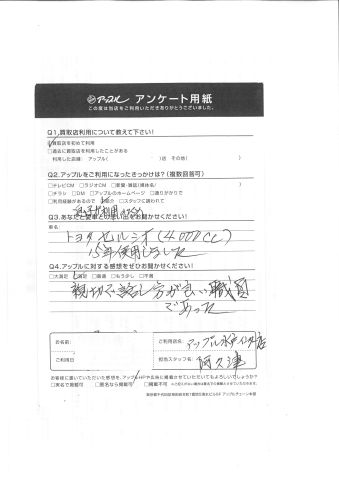 アップル アンケート用紙
この度は当店をご利用いただきありがとうございました。
Q1.買取店利用について教えて下さい!
□買取店を初めて利用
□過去に買取店を利用したことがある
利用した店舗: アップル( )店 その他( )
Q2.アップルをご利用になったきっかけは?(複数回答可)
□テレビCM □ラジオCM □新聞・雑誌(媒体名/ )
□チラシ □DM □アップルのホームページ □通りがかりで
□利用経験があるので □紹介 □スタッフに誘われて
息子が利用
Q3.あなたと愛車との思い出をお聞かせください!
車名:
トヨタセルシオ(4000cc)
15年使用しました
Q4.アップルに対する感想をぜひお聞かせください!
□大満足 □満足 □普通 □もう少し □不満
親切で話し方が良い職員
であった
お名前:
ご利用店名: アップル水戸インター店
ご利用日
担当スタッフ名: 阿久津
お客様に書いていただいた感想を、アップルHPや広告に掲載させていただいてもよろしいでしょうか?
□実名で掲載可 □匿名なら掲載可 □掲載不可